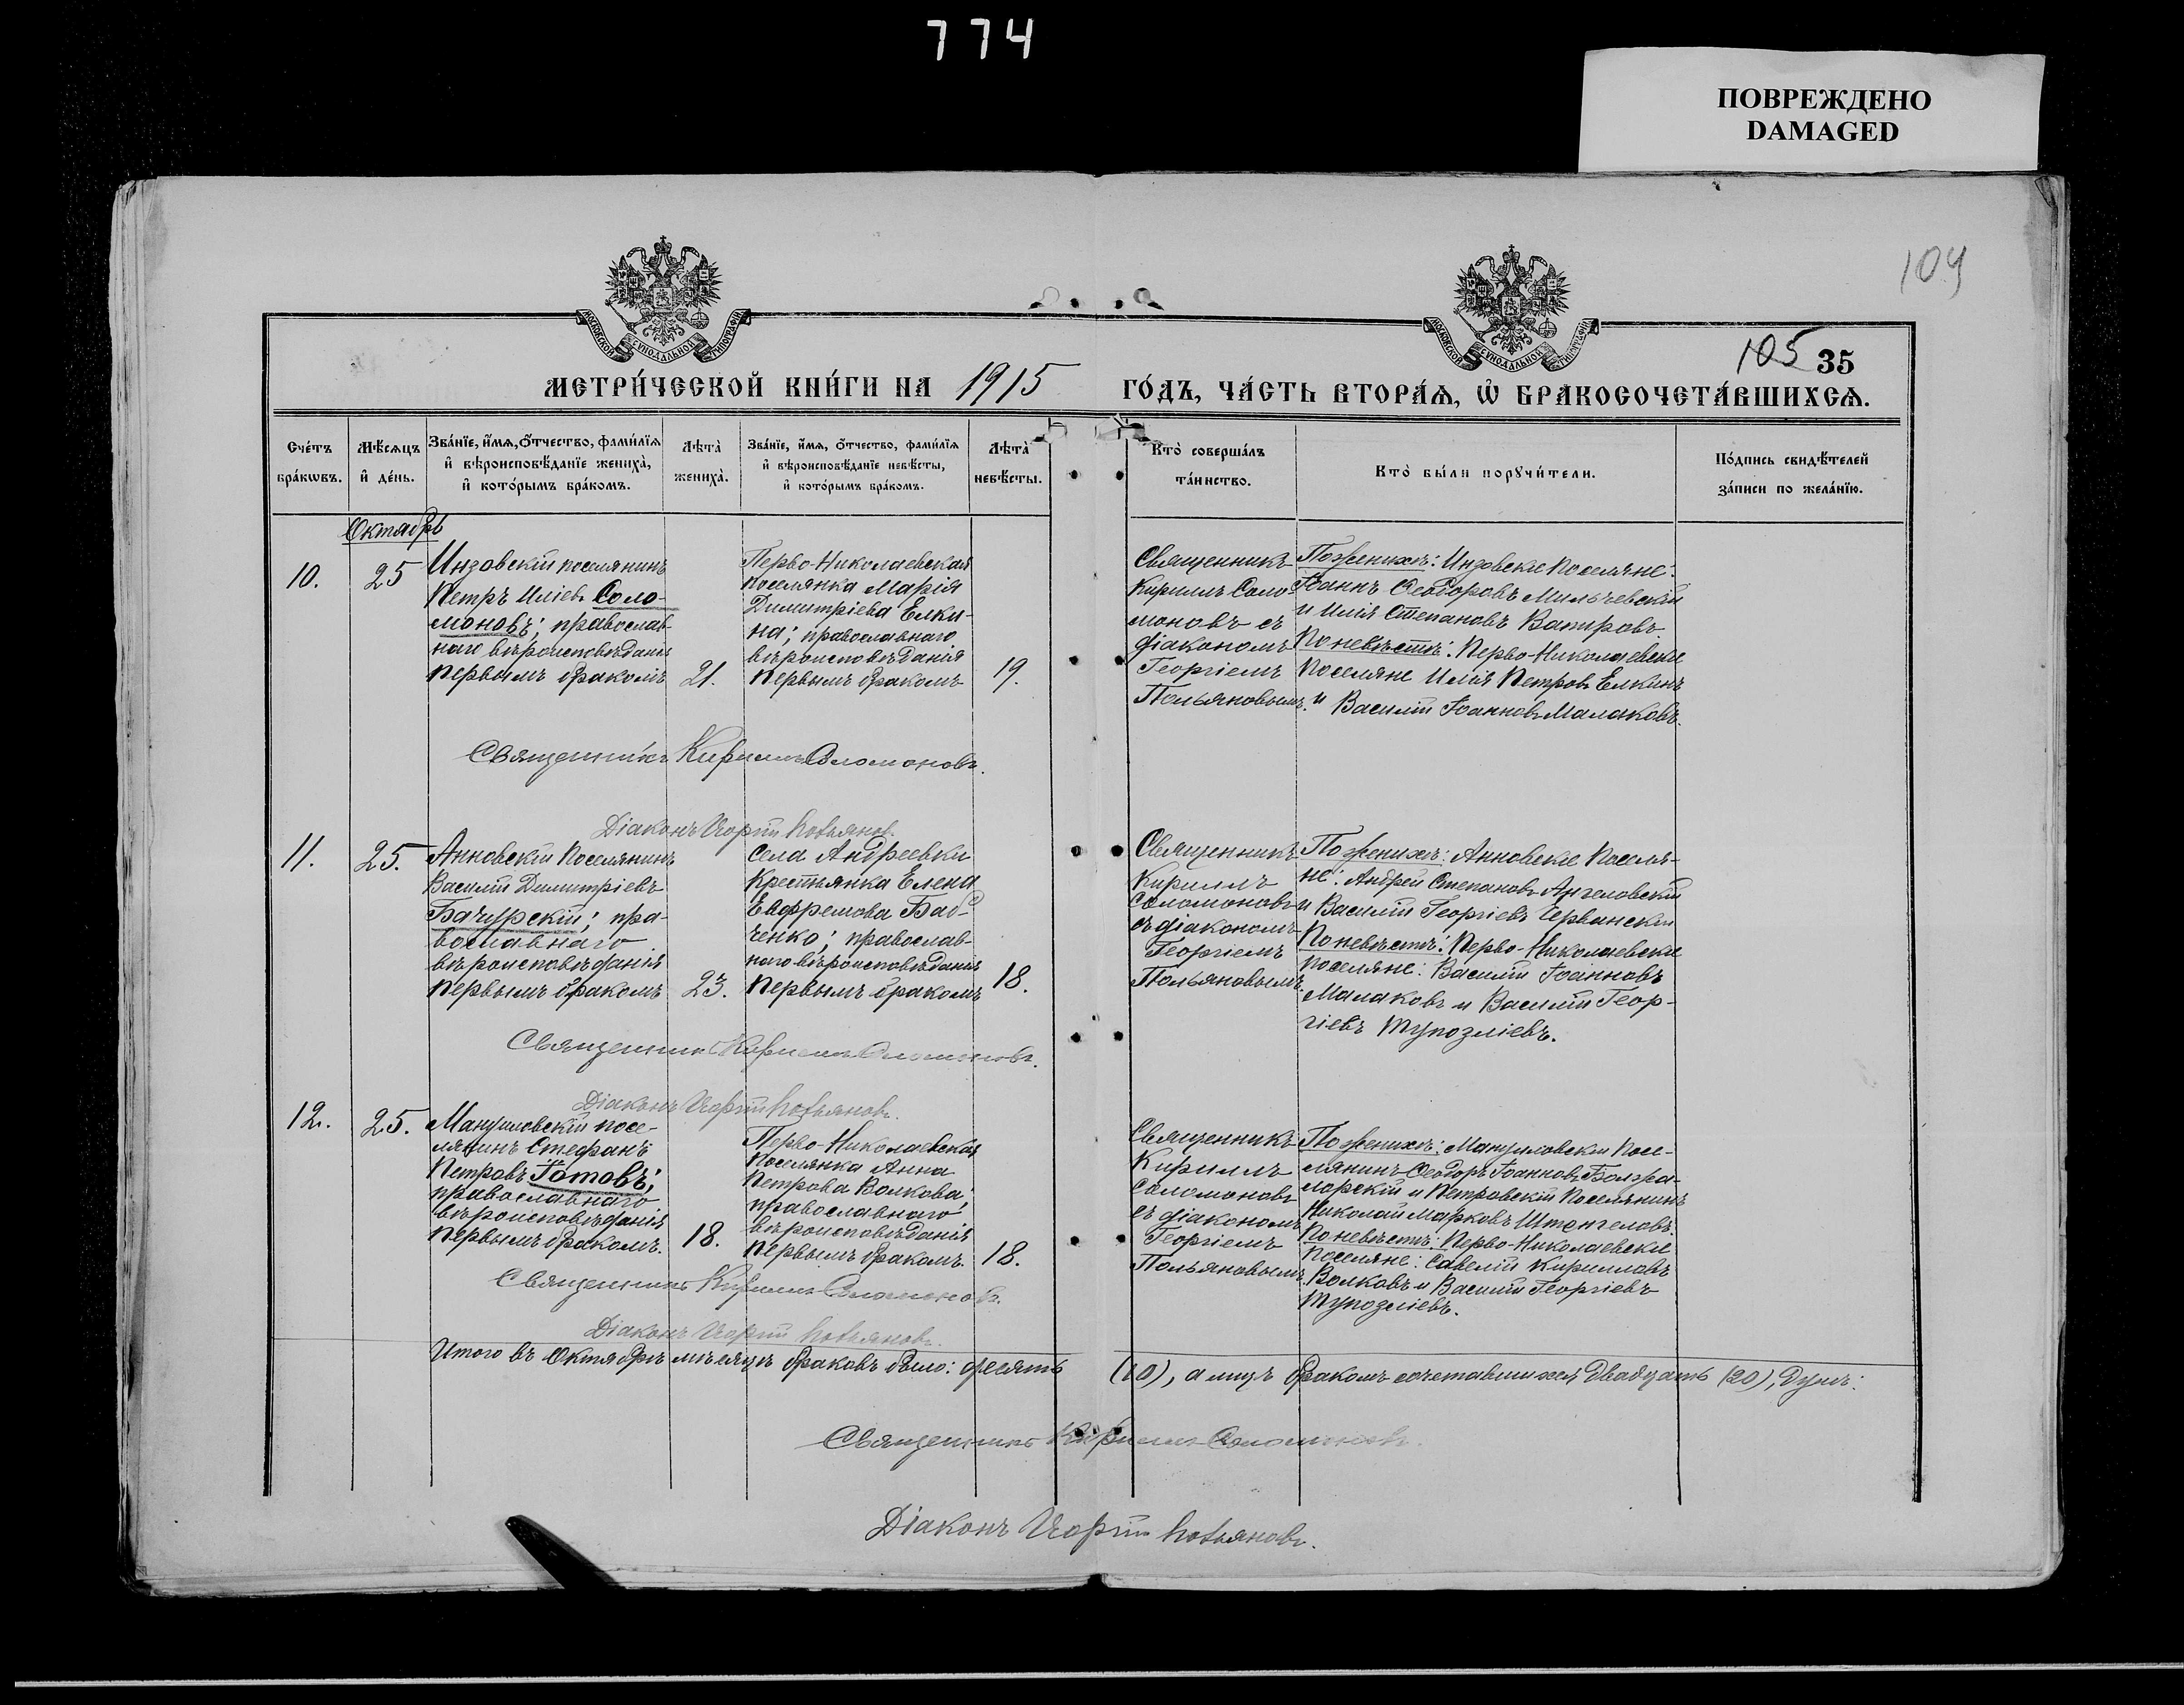 774
ПОВРЕЖДЕНО
DAMAGED
104
МОСКОВСКОЙ СѴНОДАЛЬНОЙ ТИПОГРАФІИ
МОСКОВСКОЙ СѴНОДАЛЬНОЙ ТИПОГРАФІИ
105 35
МЕТРИ́ЧЕСКОЙ КНИ́ГИ НА 1915 ГО́ДЪ, ЧА́СТЬ ВТОРА́Ѧ, Ѡ҆ БРАКОСОЧЕТА́ВШИХСѦ.
Сче́тъ
бра́кѡвъ.
Мѣ́сѧцъ
и҆ де́нь.
Зва́нїе, и҆́мѧ, ѻ҆́тчество, фами́лїѧ
и҆ вѣроисповѣ́данїе жениха̀,
и҆ кото́рымъ бра́комъ.
Лѣ́та
жениха̀.
Зва́нїе, и҆́мѧ, ѻ҆́тчество, фами́лїѧ
и҆ вѣроисповѣ́данїе невѣ́сты,
и҆ кото́рымъ бра́комъ.
Лѣ́та
невѣ́сты.
Кто̀ соверша́лъ
та́инство.
Кто̀ бы́ли порꙋчи́тели.
По́дпись свидѣ́телей
за́писи по жела́нїю.
Октябрь
10.
25
Инзовскій поселянинъ
Петръ Иліевъ Соло-
моновъ; православ-
наго вѣроисповѣданія
первымъ бракомъ
21.
Перво-Николаевская
поселянка Марія
Димитріева Елки-
на; православнаго
вѣроисповѣданія
первымъ бракомъ
19.
Священникъ
Кириллъ Соло-
моновъ съ
діакономъ
Георгіемъ
Польяновымъ.
По женихѣ: Инзовскіе поселяне:
Іоаннъ Ѳеодоровъ Мильчевскій
и Илія Степановъ Вапировъ.
По невѣстѣ: Перво-Николаевскіе
поселяне Илія Петровъ Елкинъ
и Василій Іоанновъ Малаковъ.
Священникъ Кириллъ Соломоновъ.
Діаконъ Георгій Польяновъ.
11.
25.
Анновскій поселянинъ
Василій Димитріевъ
Бачурскій; пра-
вославнаго
вѣроисповѣданія
первымъ бракомъ
23.
Села Андреевки
крестьянка Елена
Евфремова Бад-
ченко; православ-
наго вѣроисповѣданія
первымъ бракомъ
18.
Священникъ
Кириллъ
Соломоновъ
съ діакономъ
Георгіемъ
Польяновымъ.
По женихѣ: Анновскіе поселя-
не: Андрей Степановъ Ангеловскій
и Василій Георгіевъ Червенскій
По невѣстѣ: Перво-Николаевскіе
поселяне: Василій Іоанновъ
Малаковъ и Василій Геор-
гіевъ Тупозліевъ.
Священникъ Кириллъ Соломоновъ.
Діаконъ Георгій Польяновъ.
12.
25.
Мануиловскій посе-
лянинъ Стефанъ
Петровъ Іотовъ;
православнаго
вѣроисповѣданія
первымъ бракомъ.
18.
Перво-Николаевская
поселянка Анна
Петрова Волкова;
православнаго
вѣроисповѣданія
первымъ бракомъ.
18.
Священникъ
Кириллъ
Соломоновъ
съ діакономъ
Георгіемъ
Польяновымъ.
По женихѣ: Мануиловскій посе-
лянинъ Ѳеодоръ Іоанновъ Болжа-
ларскій и Петровскій поселянинъ
Николай Марковъ Штангеловъ.
По невѣстѣ: Перво-Николаевскіе
поселяне: Савелій Кирилловъ
Волковъ и Василій Георгіевъ
Тупозліевъ.
Священникъ Кириллъ Соломоновъ.
Діаконъ Георгій Польяновъ.
Итого въ Октябрѣ мѣсяцѣ браковъ было: десять (10), а лицъ бракомъ сочетавшихся двадцать (20), душъ:
Священникъ Кириллъ Соломоновъ.
Діаконъ Георгій Польяновъ.